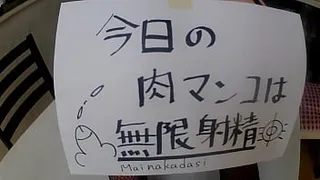 今日の
肉マンコは
無限射精
Mainakadasi